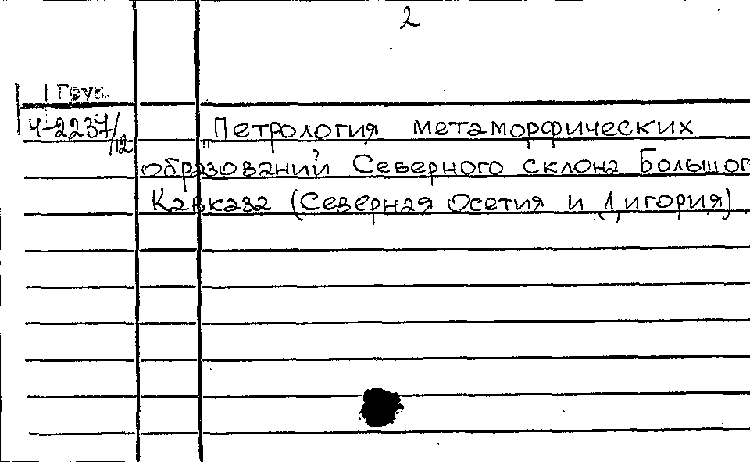 2
Груз.
Ч-2237/12
"Петрология метаморфических
образований Северного склона Большог
Кавказа (Северная Осетия и Дигория)